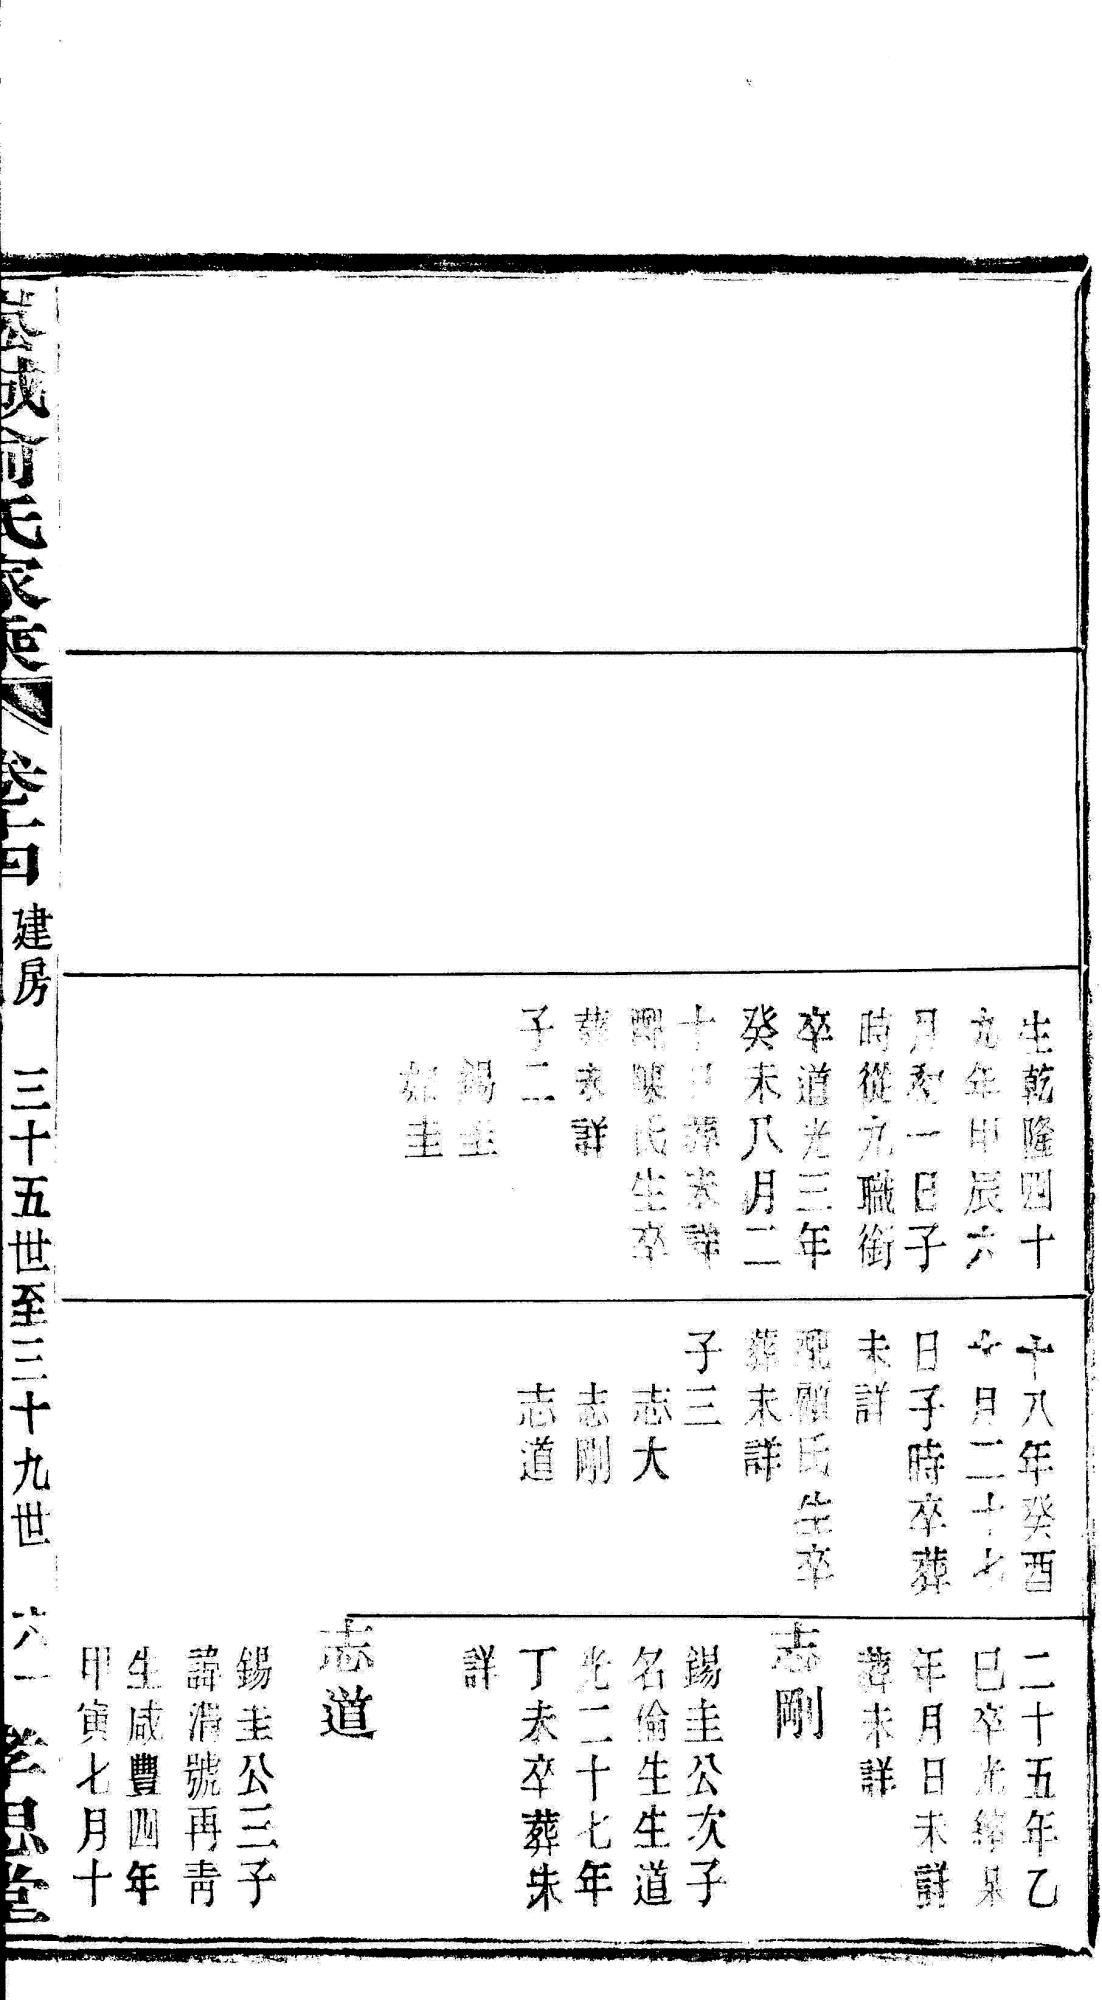 生乾隆四十
九年甲辰六
月初一日子
時從九職銜
卒道光三年
癸未八月二
十日葬未詳
配陳氏生卒
葬未詳
子二
錫圭
如圭
十八年癸酉
十月二十七
日子時卒葬
未詳
配顧氏生卒
葬未詳
子三
志大
志剛
志道
二十五年乙
巳卒光緒某
年月日未詳
葬未詳
志剛
錫圭公次子
名倫生生道
光二十七年
丁未卒葬未
詳
志道
錫圭公三子
諱清號再青
生咸豐四年
甲寅七月十
城俞氏家乘 卷十四 建房 三十五世至三十九世 六一 孝思堂